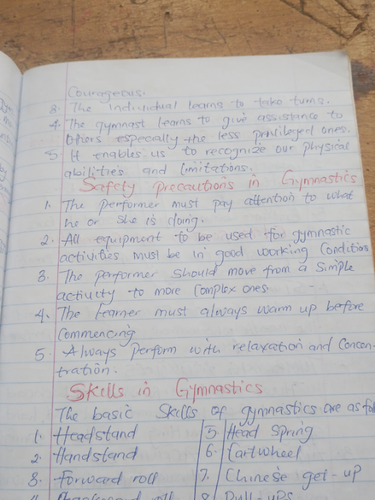 Courageous.
3. The individual learns to take turns.
4. The gymnast learns to give assistance to
Others especially the less privileged ones.
5. It enables us to recognize our physical
abilities and limitations.
Safety precautions in Gymnastics
1. The performer must pay attention to what
he or she is doing.
2. All equipment to be used for gymnastic
activities must be in good working condition
3. The performer should move from a simple
activity to more complex ones.
4. The learner must always warm up before
Commencing
5. Always perform with relaxation and Concen-
tration.
Skills in Gymnastics
The basic skills of gymnastics are as
1. Headstand
2. Handstand
3. Forward roll
5. Head spring
6. Cartwheel
7. Chinese get-up
8. Pull-ups